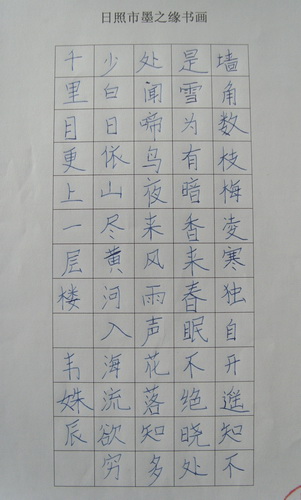 日照市墨之缘书画
墙角数枝梅凌寒独自开遥知不
是雪为有暗香来春眠不绝晓处
处闻啼鸟夜来风雨声花落知多
少白日依山尽黄河入海流欲穷
千里目更上一层楼 韦姝辰